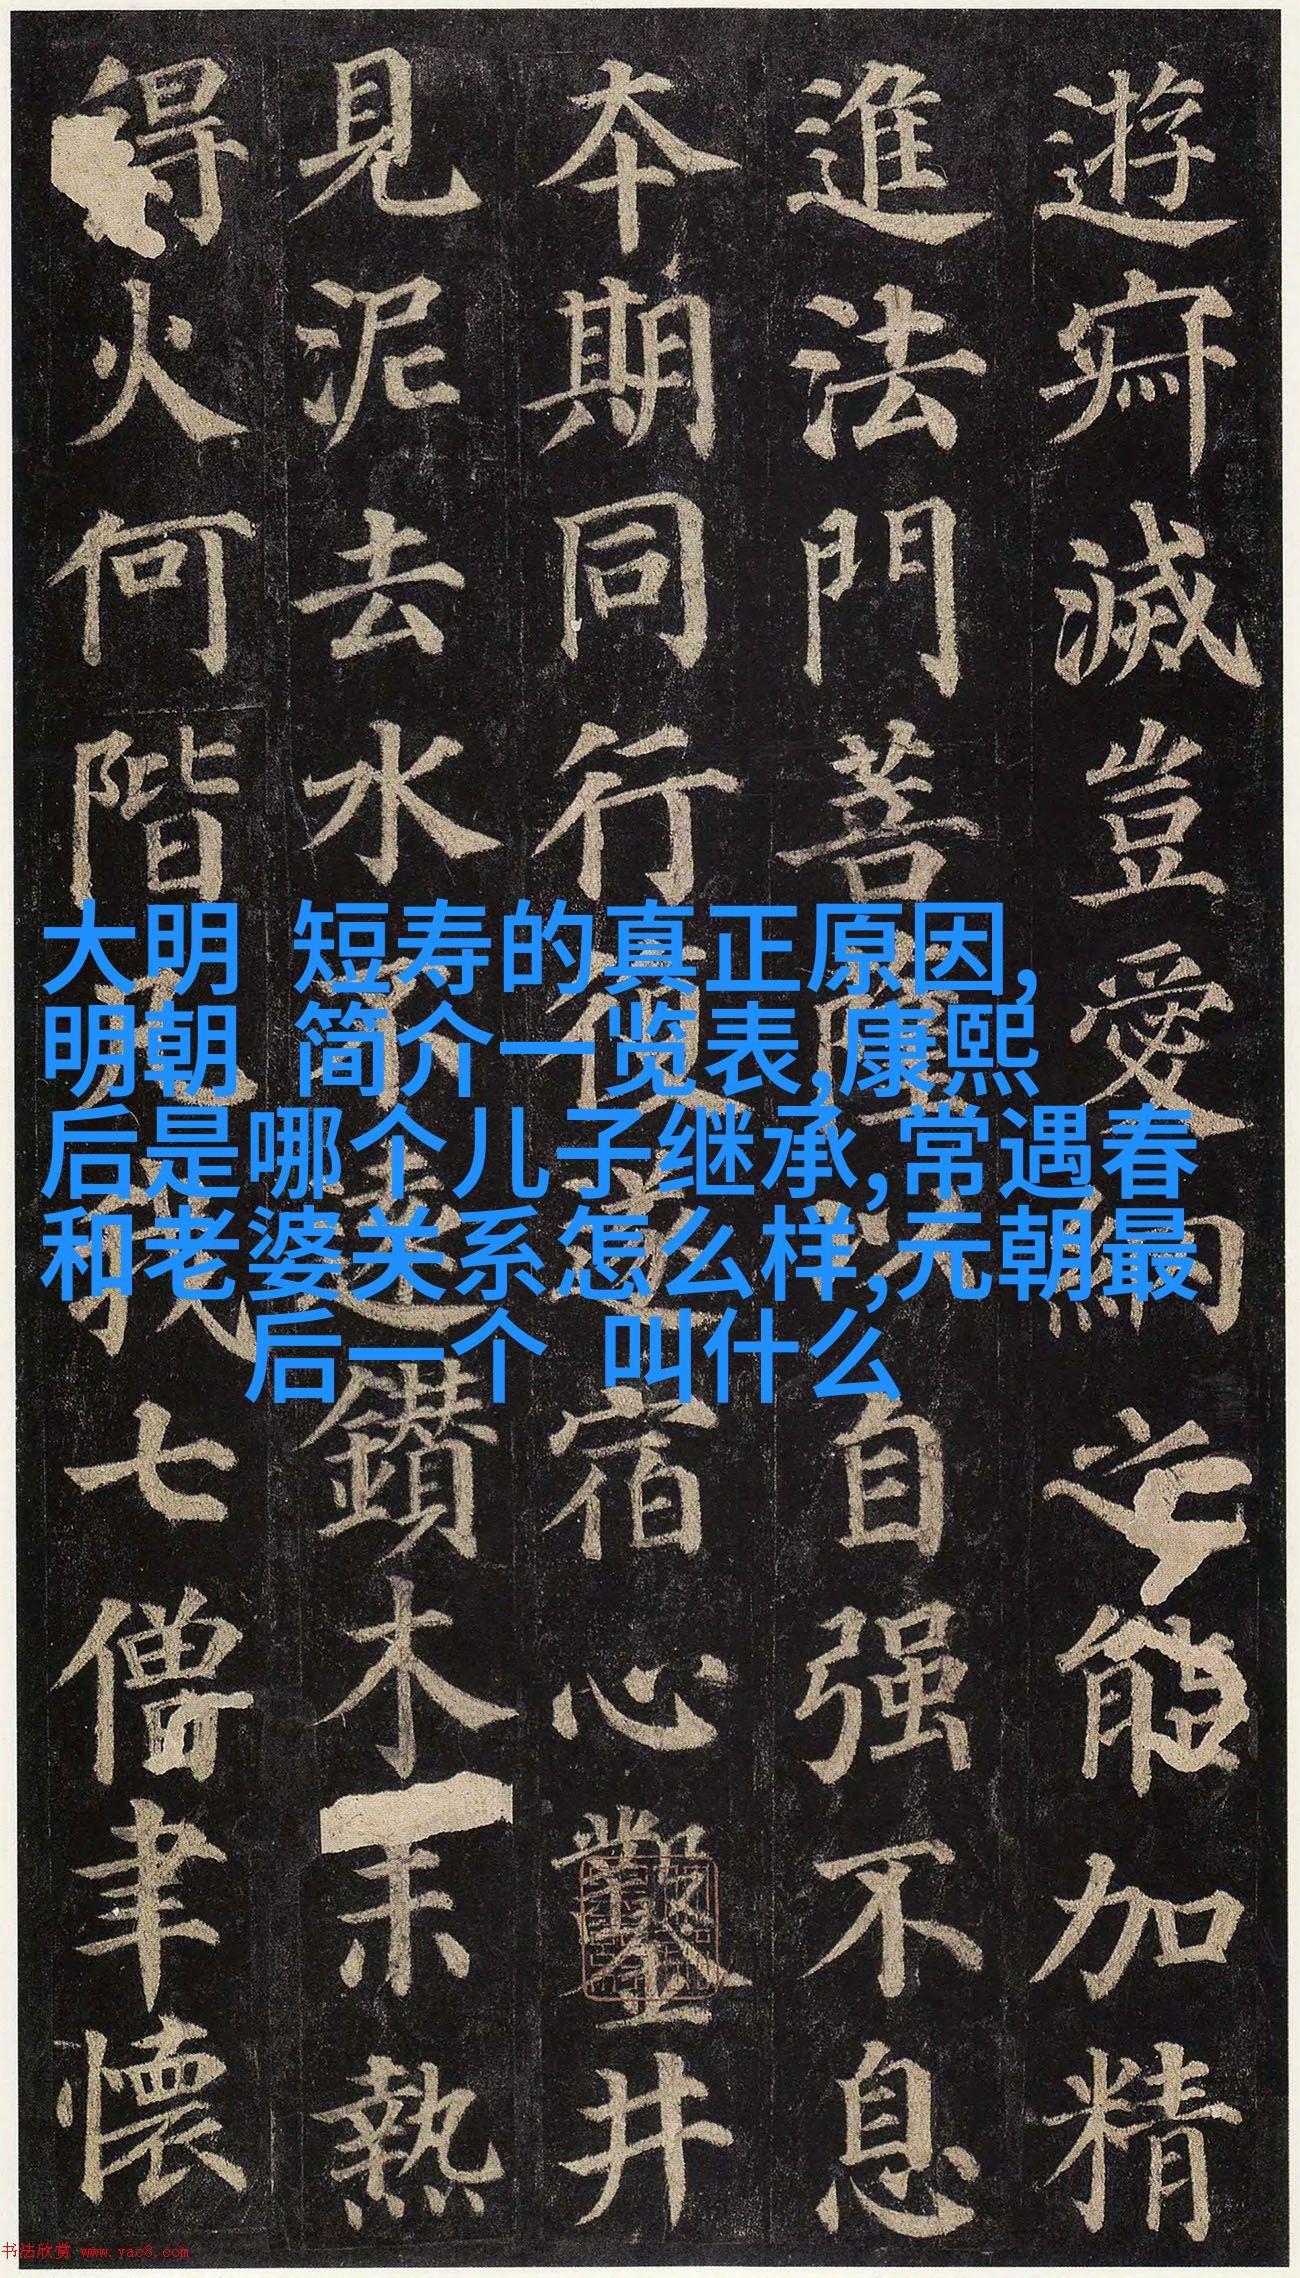 遊寂滅豈愛納之能加精
進法門菩薩以自强不息
本期同行復遂宿心鑿井
見泥去水不遠鑽木未熱
得火何階凡我七僧聿懷
大明 短寿的真正原因,
明朝 简介一览表,康熙
后是哪个儿子继承,常遇春
和老婆关系怎么样,元朝最
后一个 叫什么
书法欣赏 www.yac8.com